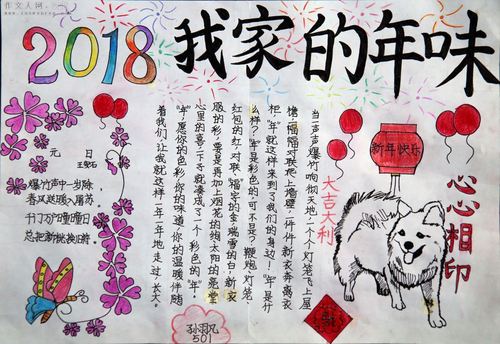 作文人网
2018 我家的年味
元 日
王安石
爆竹声中一岁除，
春风送暖入屠苏
千门万户曈曈日
总把新桃换旧符。
当一声声爆竹响彻天地，一个个灯笼飞上屋
檐，一幅幅对联爬上墙壁，一件件新衣奔离衣
柜，“年”就这样来到了我们的身边！“年”是什
么样？“年”是彩色的，可不是？鞭炮、灯笼、
红包的红，对联、“福”字的金，瑞雪的白，新衣
服的彩；要是再加上烟花的绚，太阳的亮，堂
心里的喜，一下子就凑成了一个彩色的“年”。
“年”，愿你的色彩，你的味道，你的温暖，伴随
着我们，让我就这样一年一年地走过，长大。
大吉大利
新年快乐
心心相印
福
501